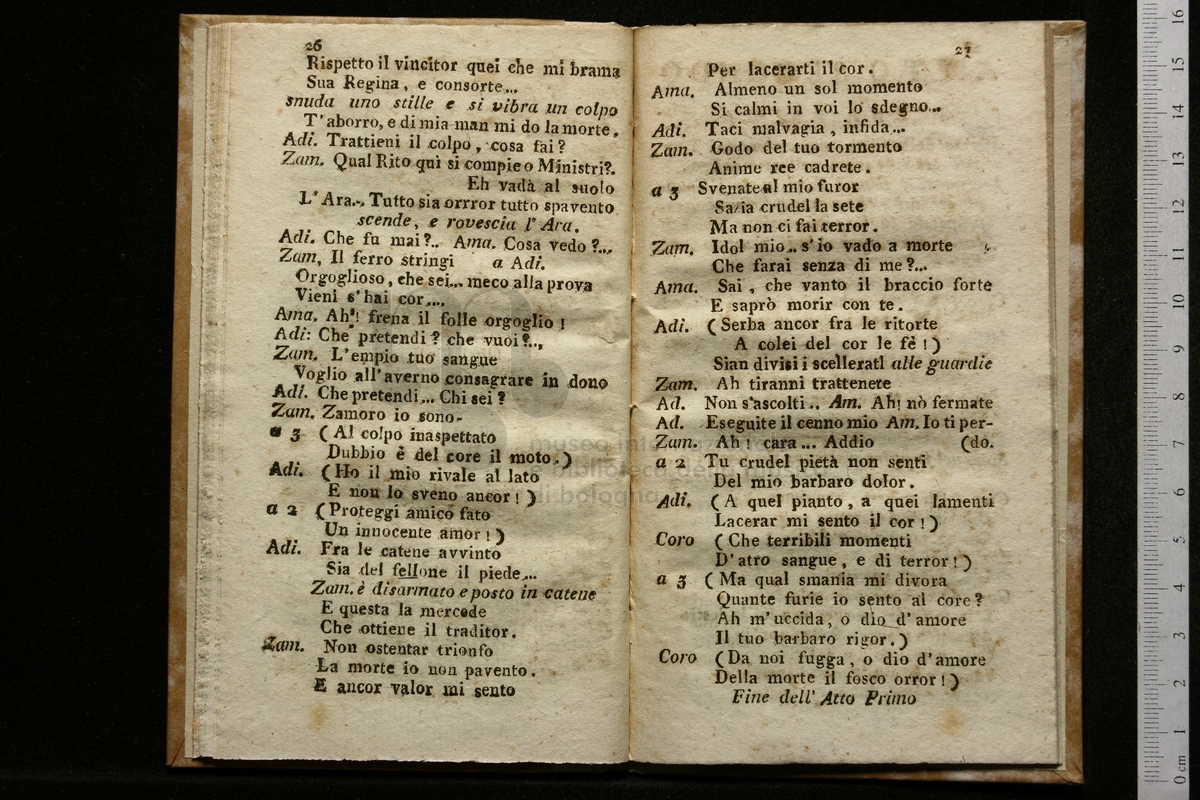 26
Rispetto il vincitor quei che mi brama
Sua Regina, e consorte...
snuda uno stille e si vibra un colpo
T'aborro, e di mia man mi do la morte.
Adi. Trattieni il colpo, cosa fai?
Zam. Qual Rito quì si compie o Ministri?.
Eh vada al suolo
L'Ara... Tutto sia orrror tutto spavento
scende, e rovescia l'Ara.
Adi. Che fu mai?.. Ama. Cosa vedo?...
Zam, Il ferro stringi a Adi.
Orgoglioso, che sei... meco alla prova
Vieni s'hai cor....
Ama. Ah! frena il folle orgoglio!
Adi: Che pretendi? che vuoi?..,
Zam. L'empio tuo sangue
Voglio all'averno consagrare in dono
Adi. Che pretendi... Chi sei?
Zam. Zamoro io sono-
a 3 (Al colpo inaspettato
Dubbio è del core il moto.)
Adi. (Ho il mio rivale al lato
E non lo sveno ancor!)
a 2 (Proteggi amico fato
Un innocente amor!)
Adi. Fra le catene avvinto
Sia del fellone il piede...
Zam. è disarmato e posto in catene
E questa la mercede
Che ottiene il traditor.
Zam. Non ostentar trionfo
La morte io non pavento.
E ancor valor mi sento
27
Per lacerarti il cor.
Ama. Almeno un sol momento
Si calmi in voi lo sdegno...
Adi. Taci malvagia, infida...
Zam. Godo del tuo tormento
Anime ree cadrete.
a 3 Svenate al mio furor
Sazia crudel la sete
Ma non ci fai terror.
Zam. Idol mio.. s'io vado a morte
Che farai senza di me?...
Ama. Sai, che vanto il braccio forte
E saprò morir con te.
Adi. (Serba ancor fra le ritorte
A colei del cor le fè!)
Sian divisi i scellerati alle guardie
Zam. Ah tiranni trattenete
Ad. Non s'ascolti.. Am. Ah! nò fermate
Ad. Eseguite il cenno mio Am. Io ti per-
Zam. Ah! cara... Addio (do.
a 2 Tu crudel pietà non senti
Del mio barbaro dolor.
Adi. (A quel pianto, a quei lamenti
Lacerar mi sento il cor!)
Coro (Che terribili momenti
D'atro sangue, e di terror!)
a 3 (Ma qual smania mi divora
Quante furie io sento al core?
Ah m'uccida, o dio d'amore
Il tuo barbaro rigor.)
Coro (Da noi fugga, o dio d'amore
Della morte il fosco orror!)
Fine dell'Atto Primo
museo internazionale
e biblioteca della musica
di bologna
0 cm 1 2 3 4 5 6 7 8 9 10 11 12 13 14 15 16